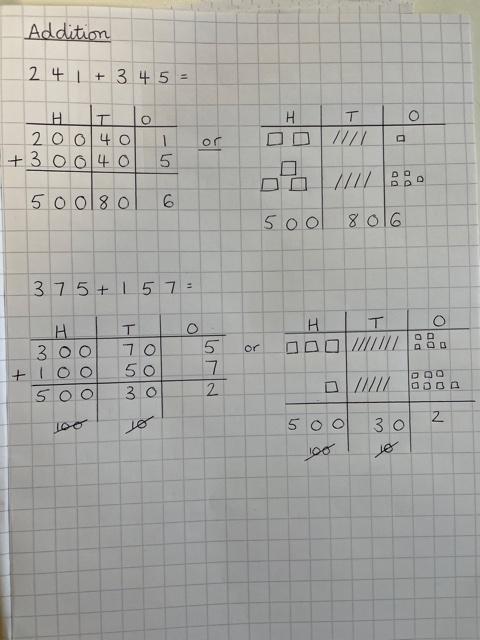 Addition
2 4 1 + 3 4 5 =
H T O
200 40 1
+ 300 40 5
500 80 6
or
H T O
500 80 6
3 7 5 + 1 5 7 =
H T O
300 70 5
+ 100 50 7
500 30 2
100 10
or
H T O
500 30 2
100 10